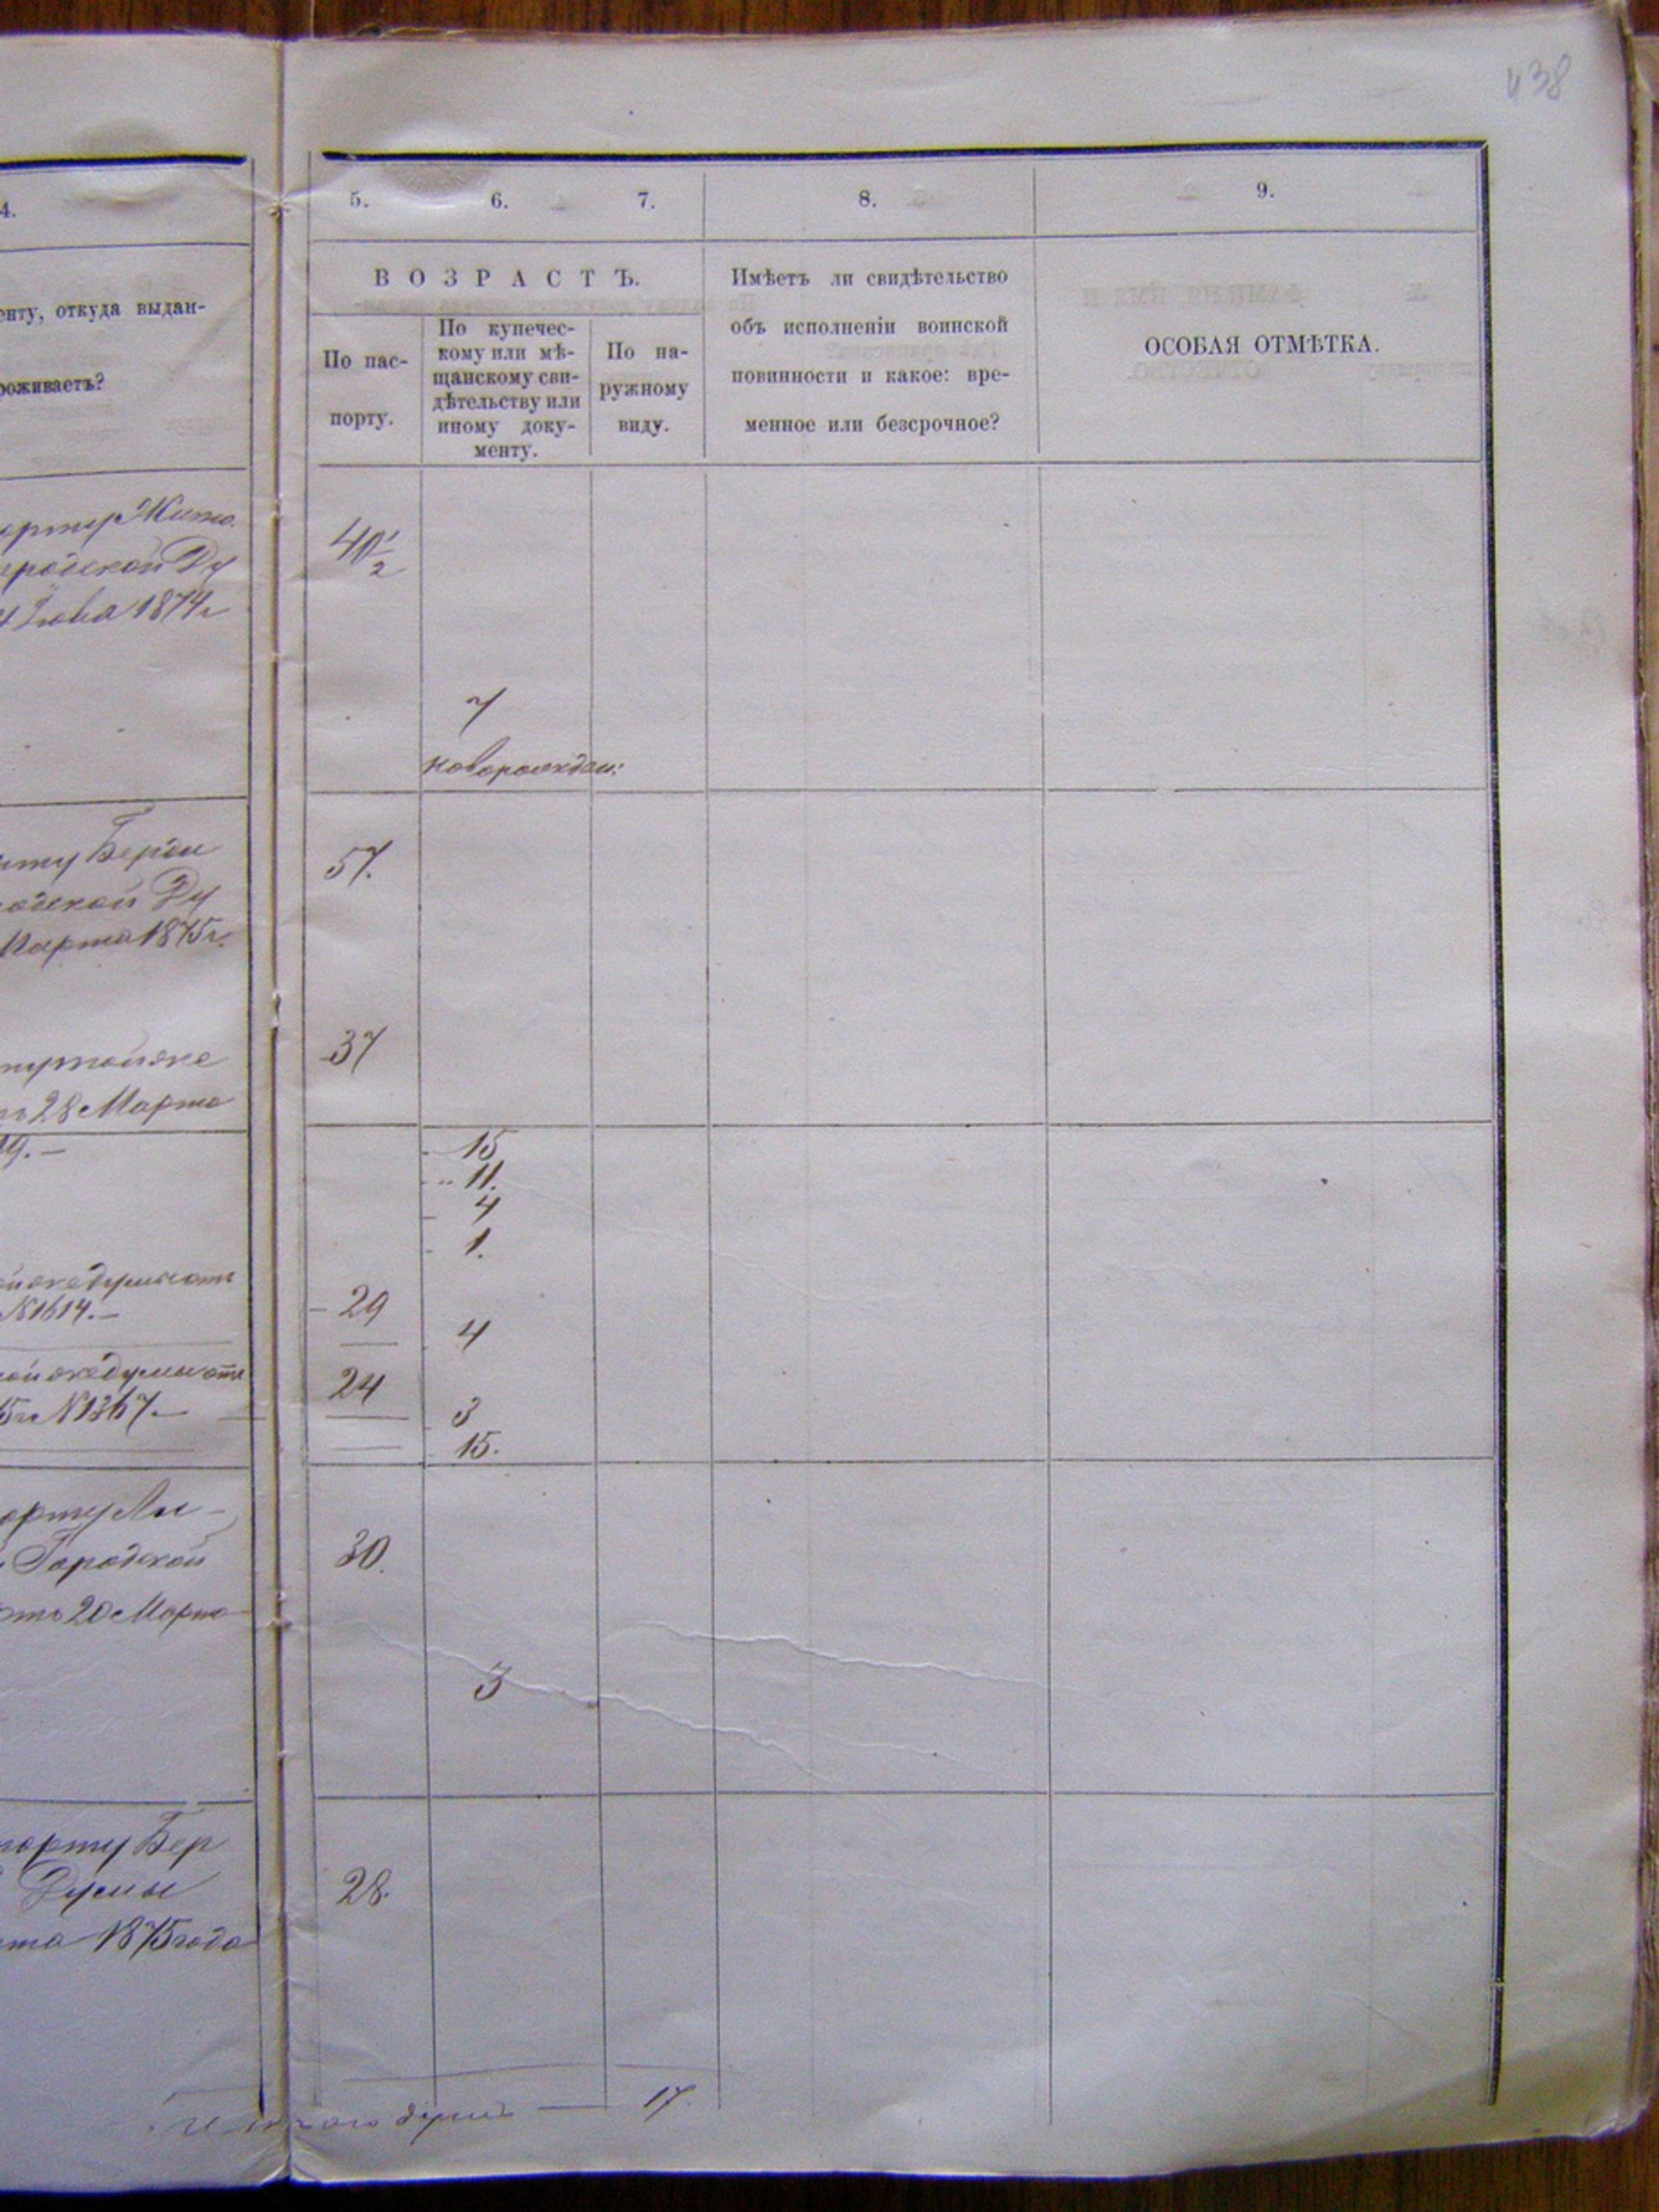 438
4.
енту, откуда выдан-
роживаетъ?
5. 6. 7. 8. 9.
ВОЗРАСТЪ.
По пас-
порту.
По купечес-
кому или мѣ-
щанскому сви-
дѣтельству или
иному доку-
менту.
По на-
ружному
виду.
Имѣетъ ли свидѣтельство
объ исполненіи воинской
повинности и какое: вре-
менное или безсрочное?
ОСОБАЯ ОТМѢТКА.
орту Жито
ородской Ду
1874г
40 1/2
7
новорожден:
рту Берди
одской Ду
Марта 1875г.
57.
37
28 Марта
9.—
15
11.
4
1.
№1614.—
29
4
думы отъ
5г №1367.—
24
3
15.
орту
Городской
отъ 20 Марта
30.
3
порту Бер
Думы
та 1875 года
28.
17.